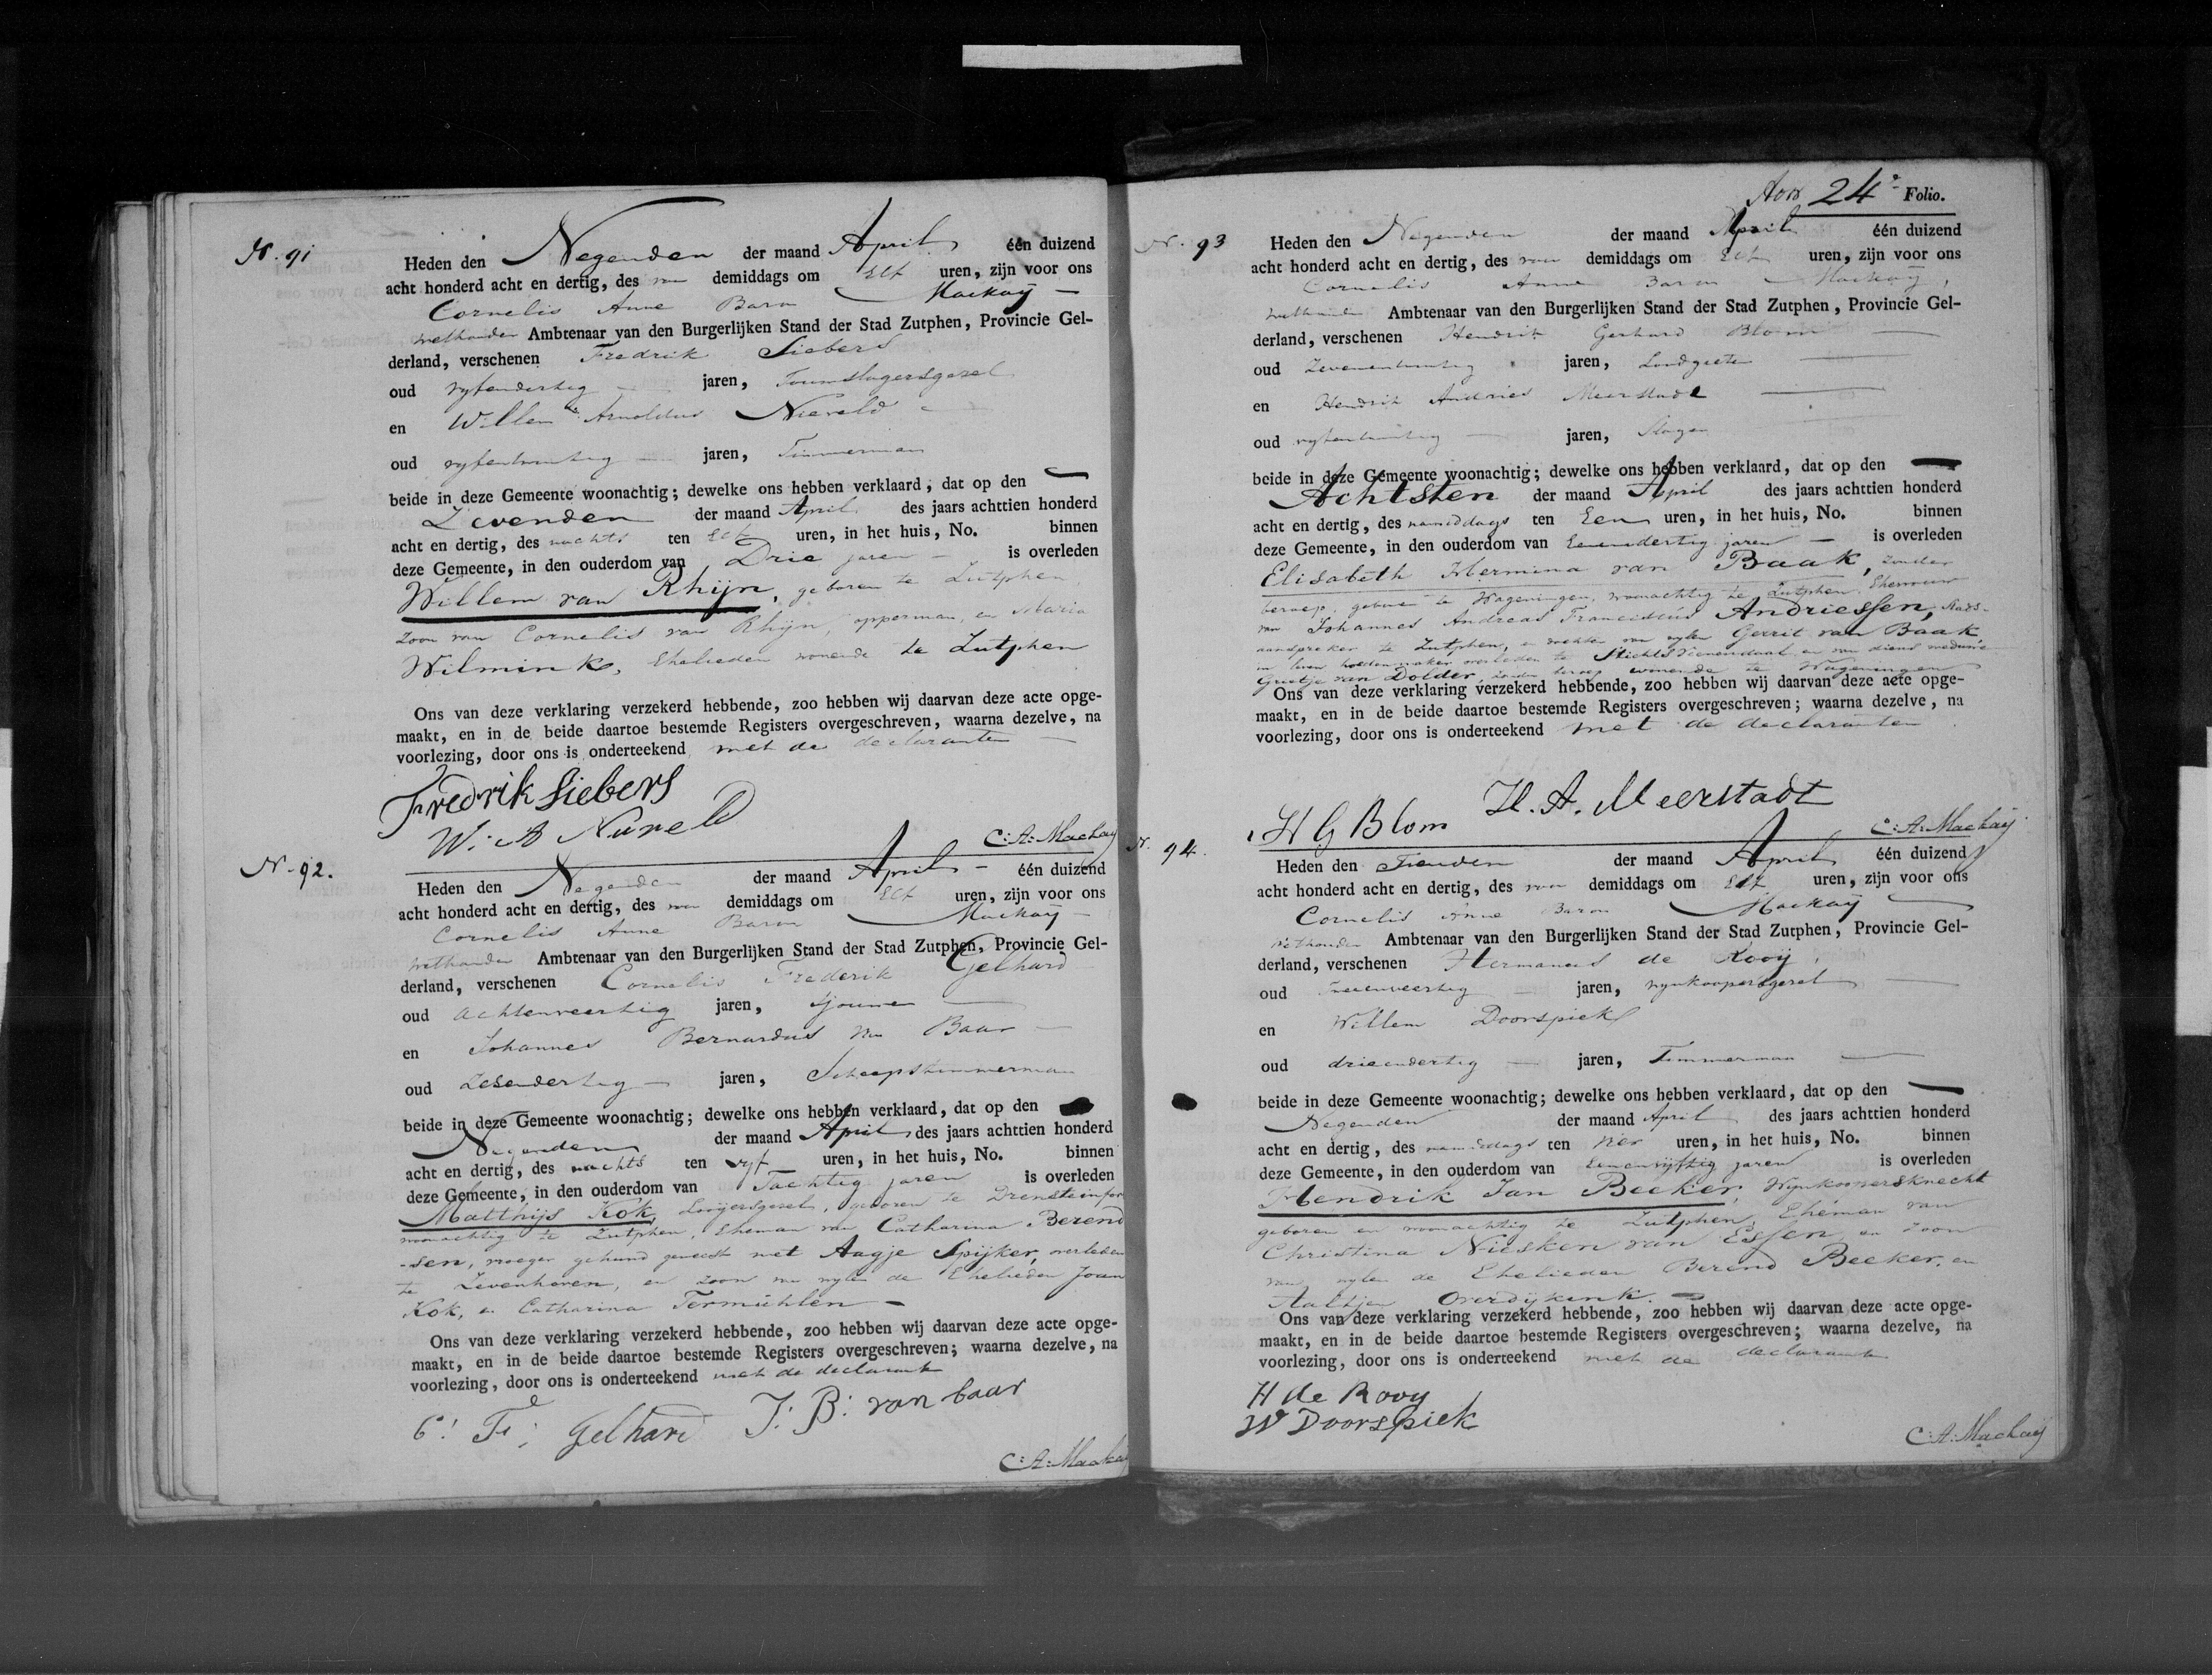 N. 91
Heden den Negenden der maand April één duizend
acht honderd acht en dertig, des voor demiddags om Elf uren, zijn voor ons
Cornelis Anne Baron Mackaij
Wethouder Ambtenaar van den Burgerlijken Stand der Stad Zutphen, Provincie Gel-
derland, verschenen Fredrik Siebers
oud vyfendertig jaren, Touwslagersgezel
en Willem Arnoldus Nieveld
oud vyfentwintig jaren, Timmerman
beide in deze Gemeente woonachtig; dewelke ons hebben verklaard, dat op den
Zevenden der maand April des jaars achttien honderd
acht en dertig, des nachts ten Elf uren, in het huis, No. binnen
deze Gemeente, in den ouderdom van Drie jaren is overleden
Willem van Rhijn, geboren te Zutphen,
zoon van Cornelis van Rhijn, opperman, en Maria
Wilmink, Ehelieden wonende te Zutphen
Ons van deze verklaring verzekerd hebbende, zoo hebben wij daarvan deze acte opge-
maakt, en in de beide daartoe bestemde Registers overgeschreven, waarna dezelve, na
voorlezing, door ons is onderteekend met de declaranten
Fredrik Siebers
W. A Nuveld
C: A: Mackay
N. 92.
Heden den Negenden der maand April één duizend
acht honderd acht en dertig, des voor demiddags om Elf uren, zijn voor ons
Cornelis Anne Baron Mackaij
Wethouder Ambtenaar van den Burgerlijken Stand der Stad Zutphen, Provincie Gel-
derland, verschenen Cornelis Frederik Gelhard
oud Achtenveertig jaren, sjouwer
en Johannes Bernardus van Baar
oud Zesendertig jaren, Scheepstimmerman
beide in deze Gemeente woonachtig; dewelke ons hebben verklaard, dat op den
Negenden der maand April des jaars achttien honderd
acht en dertig, des nachts ten vyf uren, in het huis, No. binnen
deze Gemeente, in den ouderdom van Tachtig jaren is overleden
Matthijs Kok, Looijersgezel, geboren te Drensteinfor
woonachtig te Zutphen, Eheman van Catharina Berend
-sen, vroeger gehuwd geweest met Aagje Spijker, overleden
te Zevenhoven, en zoon van wylen de Ehelieden Joan
Kok, en Catharina Termühlen
Ons van deze verklaring verzekerd hebbende, zoo hebben wij daarvan deze acte opge-
maakt, en in de beide daartoe bestemde Registers overgeschreven; waarna dezelve, na
voorlezing, door ons is onderteekend met de declarant
C: F: Gelhard J: B: van baar
C: A: Mackay
24e Folio.
N. 93
Heden den Negenden der maand April één duizend
acht honderd acht en dertig, des voor demiddags om Elf uren, zijn voor ons
Cornelis Anne Baron Mackaij,
Wethouder Ambtenaar van den Burgerlijken Stand der Stad Zutphen, Provincie Gel-
derland, verschenen Hendrik Gerhard Blom
oud Zevenentwintig jaren, Loodgieter
en Hendrik Andries Meerstadt
oud vyfentwintig jaren, Slager
beide in deze Gemeente woonachtig; dewelke ons hebben verklaard, dat op den
Achtsten der maand April des jaars achttien honderd
acht en dertig, des namiddags ten Een uren, in het huis, No. binnen
deze Gemeente, in den ouderdom van Eenendertig jaren is overleden
Elisabeth Hermina van Baak, zonder
beroep, geboren te Wageningen, woonachtig te Zutphen, Ehevrouw
van Johannes Andreas Franciscus Andriessen, Stads-
aanspreker te Zutphen, en dochter van wylen Gerrit van Baak,
in leven hoedenmaker, overleden te en van diens weduwe
Grietje van Dolder, zonder beroep, wonende te Wageningen
Ons van deze verklaring verzekerd hebbende, zoo hebben wij daarvan deze acte opge-
maakt, en in de beide daartoe bestemde Registers overgeschreven; waarna dezelve, na
voorlezing, door ons is onderteekend met de declaranten
H G Blom H. A. Meerstadt
C: A: Mackay
N. 94.
Heden den Tienden der maand April één duizend
acht honderd acht en dertig, des voor demiddags om Elf uren, zijn voor ons
Cornelis Anne Baron Mackaij
Wethouder Ambtenaar van den Burgerlijken Stand der Stad Zutphen, Provincie Gel-
derland, verschenen Hermanus de Rooij,
oud Tweeenveertig jaren, wynkoopersgezel
en Willem Doorspiek
oud drieendertig jaren, Timmerman
beide in deze Gemeente woonachtig; dewelke ons hebben verklaard, dat op den
Negenden der maand April des jaars achttien honderd
acht en dertig, des namiddags ten vier uren, in het huis, No. binnen
deze Gemeente, in den ouderdom van Eenenvijftig jaren is overleden
Hendrik Jan Becker, Wynkoopersknecht
geboren en woonachtig te Zutphen, Eheman van
Christina Niesken van Essen, en zoon
van wylen de Ehelieden Berend Becker, en
Aaltjen Overdijkenk.
Ons van deze verklaring verzekerd hebbende, zoo hebben wij daarvan deze acte opge-
maakt, en in de beide daartoe bestemde Registers overgeschreven; waarna dezelve, na
voorlezing, door ons is onderteekend met de declarant
H de Rooy
W Doorspiek
C: A: Mackay